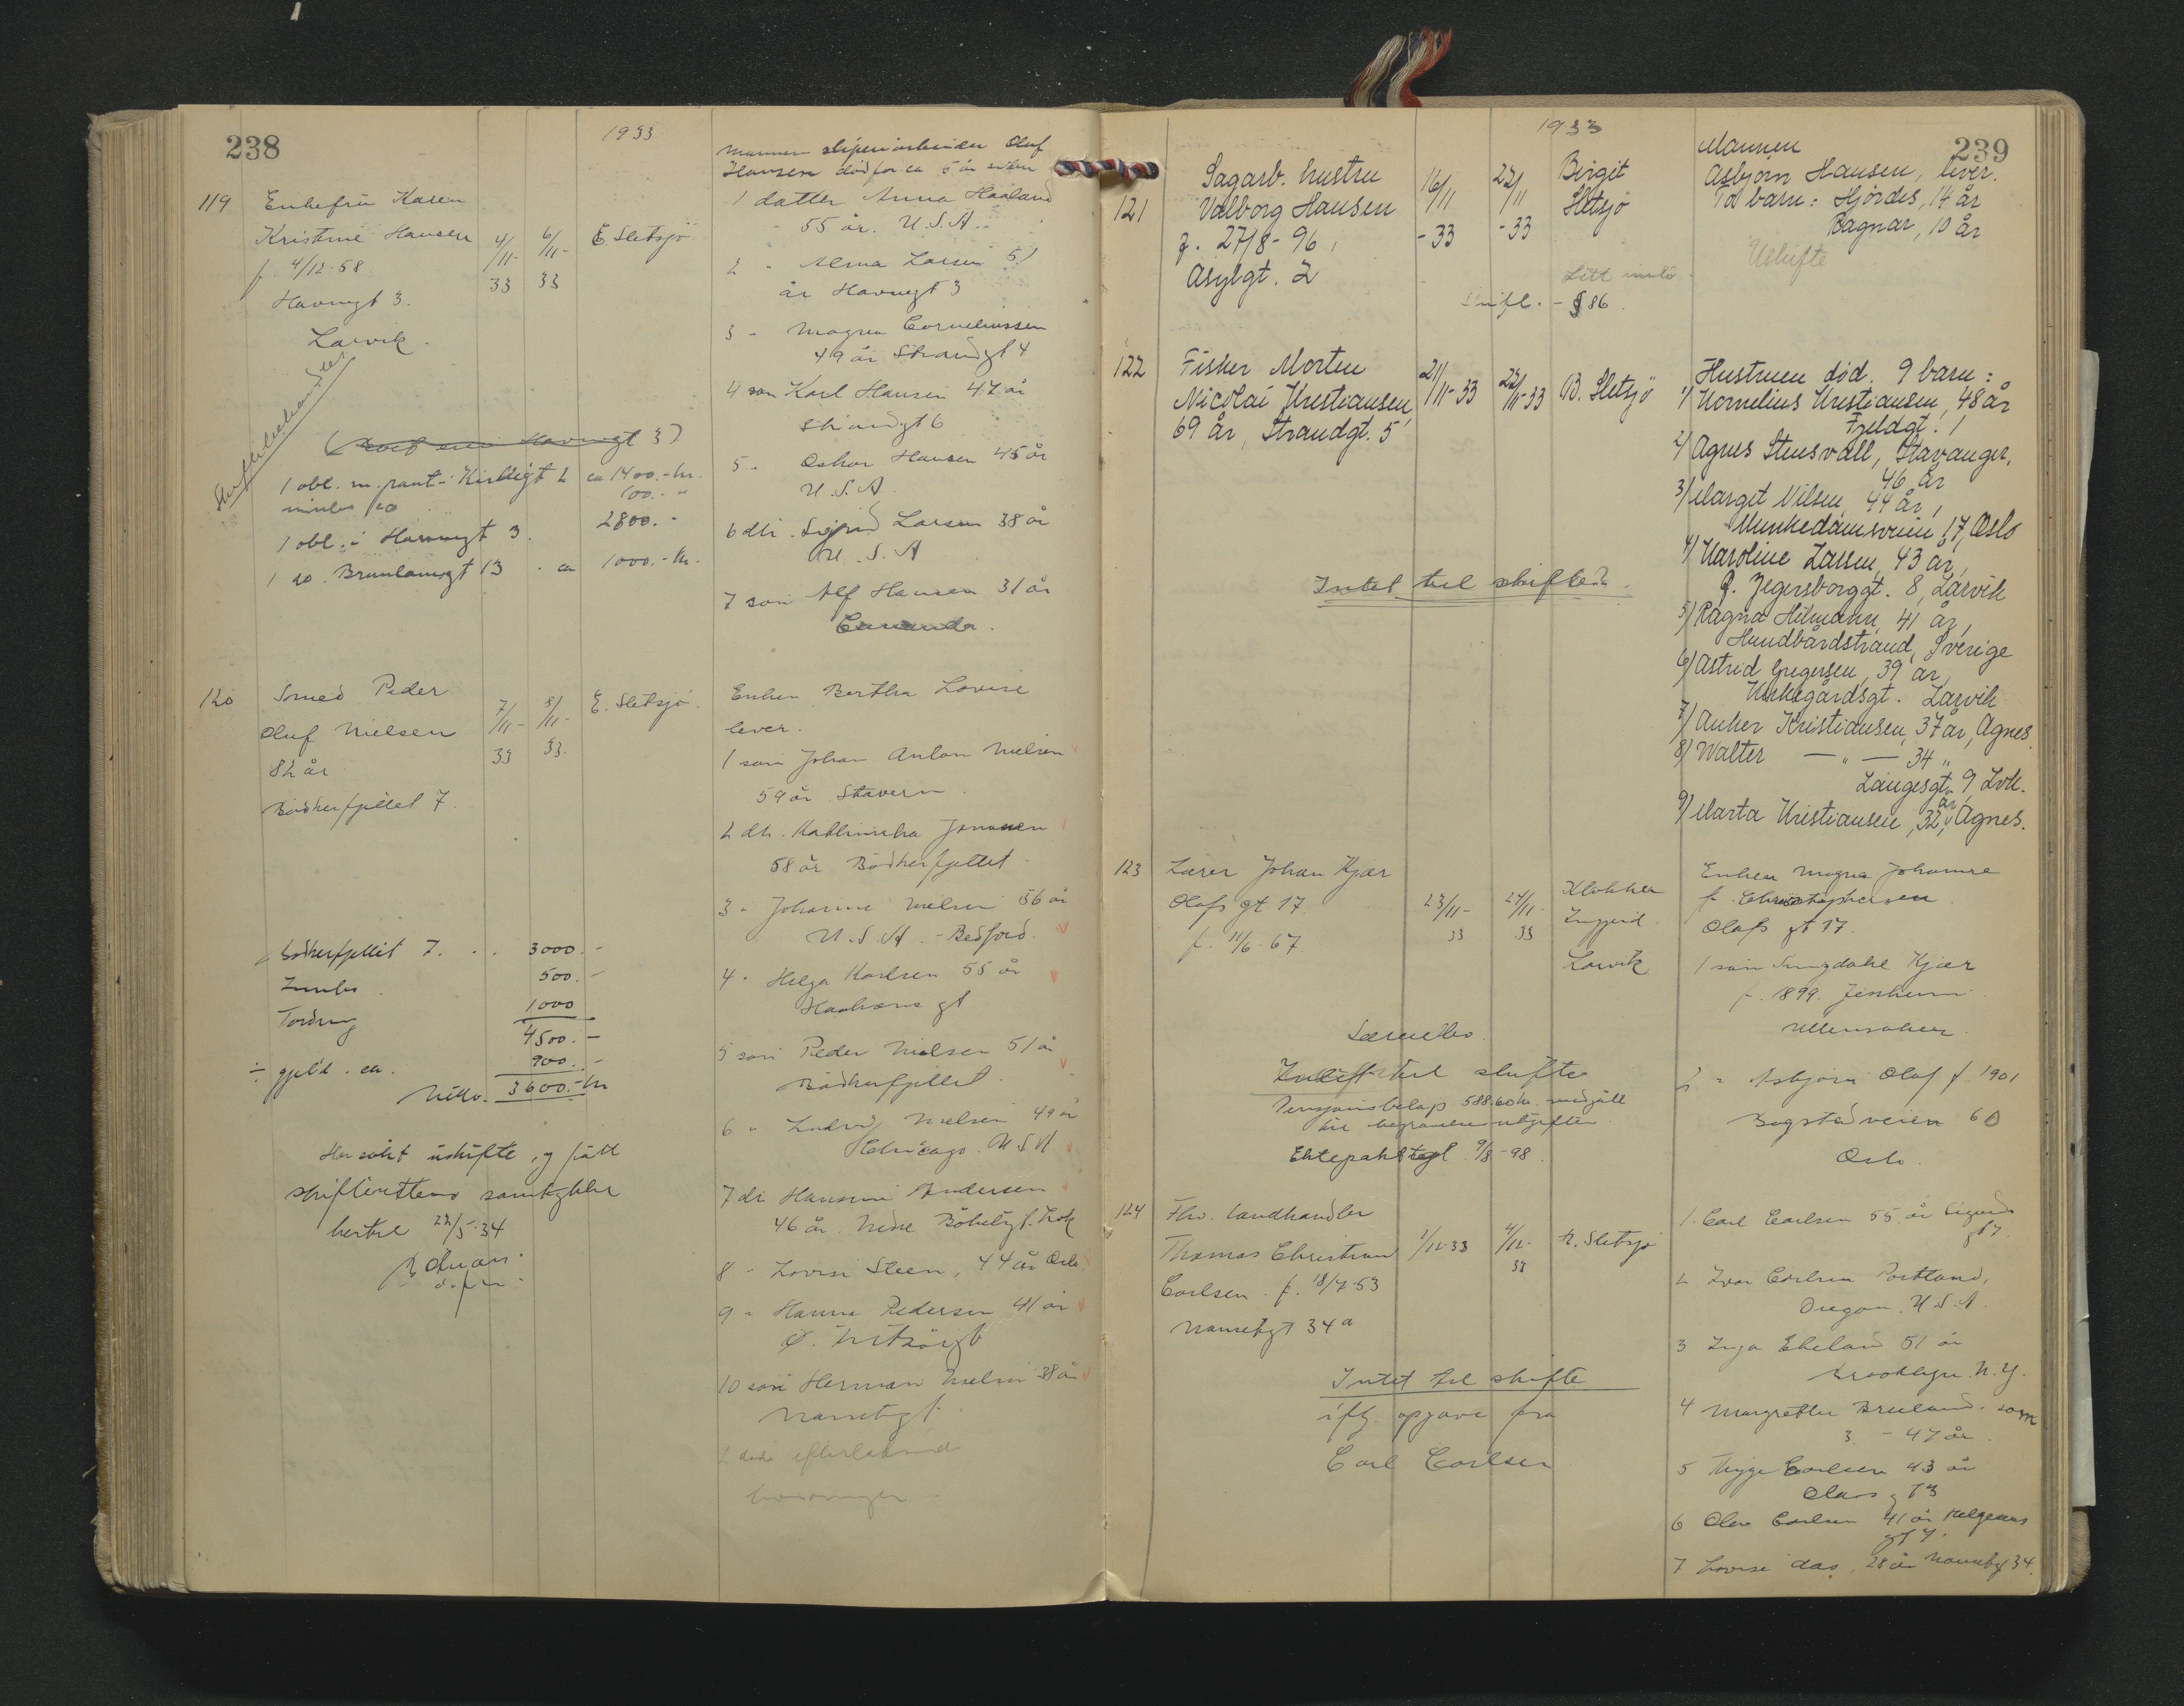 238
1933
mannen sliperiarbeider Oluf
Hansen død for ca 5 år siden
119
Enkefru Karen
Kristine Hansen
f. 4/12-58
Havnegt 3.
Larvik.
4/11-33
6/11-33
E Sletsjö
1 datter Anna Haaland
55 år. U.S.A.
2 " Alma Larsen 51
år Havnegt 3
3 " Magna Corneliussen
49 år Strandgt 4
4 søn Karl Hansen 47 år
Strandgt 6
5 " Oskar Hansen 45 år
U.S.A.
6 dtr. Sigrid Larsen 38 år
U.S.A
7 søn Alf Hansen 31 år
Canada.
Havnegt 3)
1 obl. m. pant i Kirkegt 2 ca 1400.- kr.
innbo ca 100.- "
1 obl. i Havnegt 3. 2800.-
1 do. Brunlanesgt 13 - ca 1000.- kr.
120
Smed Peder
Oluf Nielsen
82 år
Bödkerfjellet 7.
7/11-33
8/11-33.
E. Sletsjö.
Enken Bertha Lovise
lever.
1 søn Johan Anton Nielsen
59 år Stavern.
2 dtr. Kathinka Jonassen
58 år Bödkerfjellet.
3 " Johanne Nielsen 56 år
U.S.A. - Bedford.
4 " Helga Karlsen 55 år
Haakons gt
5 søn Peder Nielsen 51 år
Bödkerfjellet.
6 " Ludvig Nielsen 49 år
Chicago. U S A
7 dr Hansine Andersen
46 år. Nedre Bökeligt. Lvk
8 " Lovise Steen, 44 år Oslo
9 " Hanna Pedersen 41 år
10 søn Herman Nielsen 38 år
Nansetgt.
2 døde efterlatend
Bödkerfjellet 7. . . 3000.-
Innbo 500.-
1000
4500.-
÷ gjeld. ca. 900.-
Netto. 3600.- kr
Har søkt uskifte, og fått
skifterettens samtykke
hertil 22/5-34
239
1933
121
Sagarb. hustru
Valborg Hansen
f. 27/8-96,
Asylgt. 2
16/11-33
22/11-33
Birgit
Sletsjö
Mannen
Asbjörn Hansen, lever.
To barn: Hjördis, 14 år
Ragnar, 10 år
Uskifte
Litt innbo
Skifl. - § 86.
122
Fisker Morten
Nicolai Kristiansen,
69 år, Strandgt. 5
21/11-33
22/11-33
B. Sletsjö
Hustruen död. 9 barn:
1/ Kornelius Kristiansen, 48 år
Fjeldgt. 1
2/ Agnes Stensvall, Stavanger,
46 år
3/ Margit Nilsen, 44 år,
Munkedamsveien 17, Oslo
4/ Karoline Larsen, 43 år,
P. Jegersborggt. 8, Larvik
5/ Ragna Hilmann, 41 år,
Hundbårdstrand, Sverige
6/ Astrid Gregersen, 39 år,
Kirkegårdsgt. Larvik
7/ Anker Kristiansen, 37 år, Agnes.
8/ Walter — " — 34 "
Langesgt. 9 Lvk.
9/ Marta Kristiansen, 32 år, Agnes.
Intet til skifte.
123
Lærer Johan Kjær
Olafs gt 17.
f. 11/6-67.
23/11-33
24/11-33
Klokker
Larvik
Enken Magna Johanne
f. Christophersen
Olafs gt 17.
1 søn Kjær
f. 1899. Jessheim
Ullensaker.
2 " Asbjørn Olaf f. 1901
Bogstadveien 60
Oslo.
Særeibo.
Intet til skifte
Pensjonsbeløp 588.60 kr. medgått
til begravelsesutgifter
Ektepakt tgl. 9/8-98.
124
Fhv. landhandler
Thomas Christian
Carlsen. f. 18/7-53
Nansetgt 34 a
1/12-33
4/12-33
E. Sletsjö
1. Carl Carlsen 55 år Sigurds
gt 7
2 Ivar Carlsen Portland,
Oregon. U.S.A.
3 Inga Ekeland 51 år
Brooklyn. N.Y.
4 Margrethe Breeland. som
3. - 47 år.
5 Thygo Carlsen 43 år
Olavs gt 3
6 Olav Carlsen 41 år Helgesens
gt 4.
7 Lovise do, 28 år Nansetgt 34.
Intet til skifte
iflg. opgave fra
Carl Carlsen